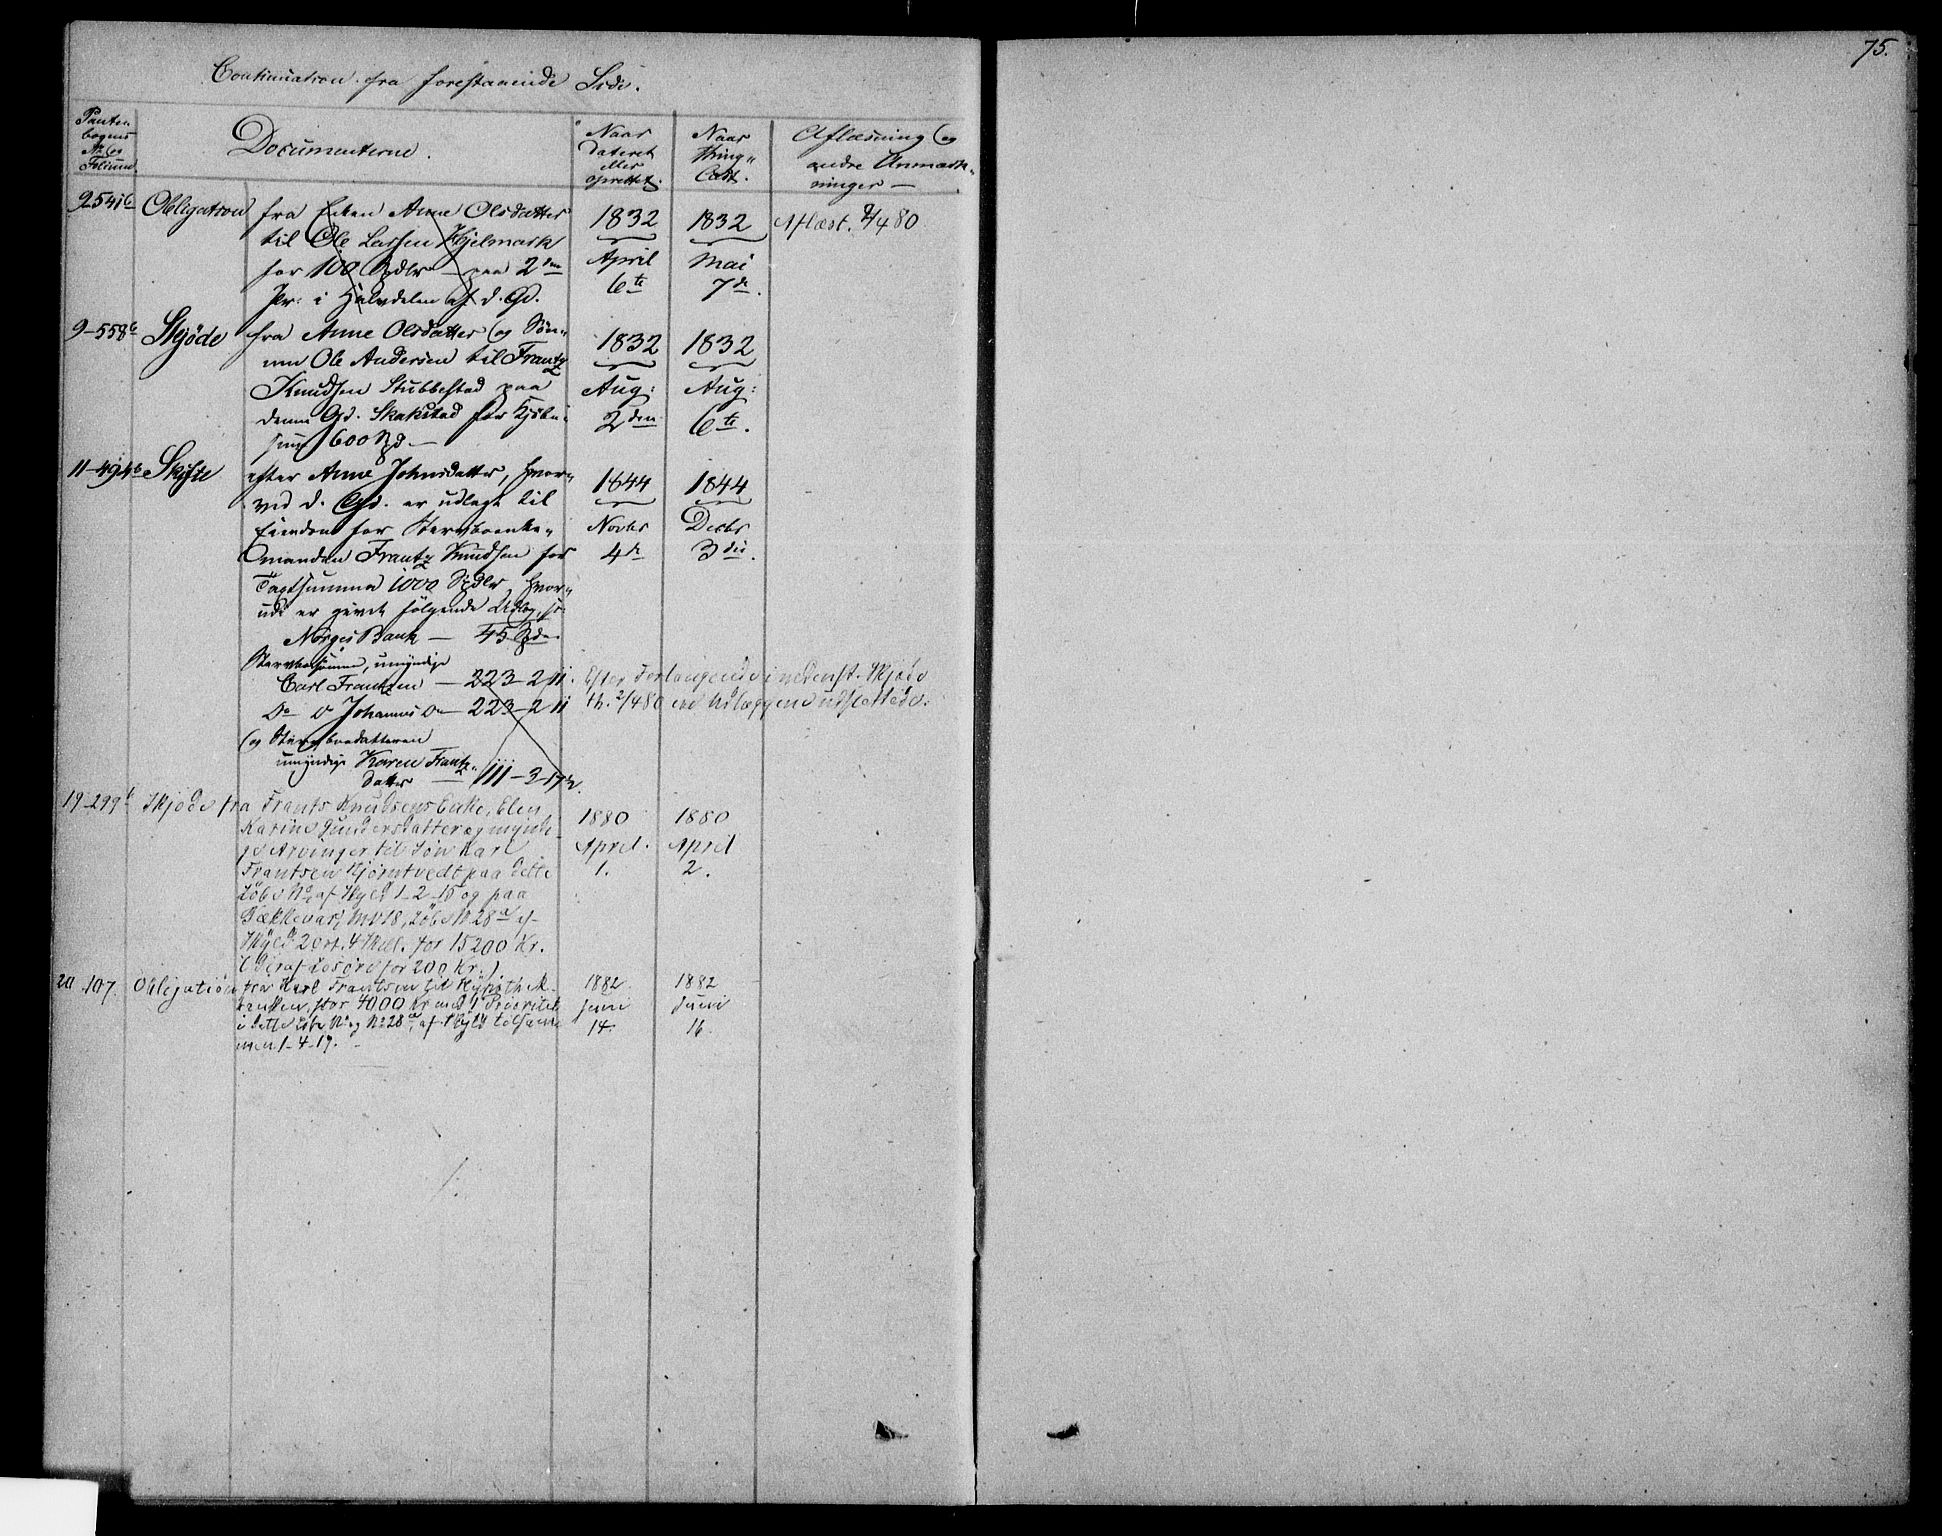 75.
Continuation fra forestaaende Side.
Pante-
bogens
No og
Folium.
Documenterne.
Naar
dateret
eller
oprettet.
Naar
thing-
læst.
Aflæsning og
andre Anmærk-
ninger —
9-541b Obligation fra Enken Anne Olsdatter
til Ole Larsen Hjelmark
for 100 Spdlr paa 2den
Pr: i Halvdelen af d. Gd.
1832
April
6te
1832
Mai
7de.
Aflæst. 2/4 80
9-558b Skjöde fra Anne Olsdatter og Søn-
nen Ole Andersen til Frantz
Knudsen Stubbestad paa
denne Gd. Skakstad for Kjöbe-
sum 600 Spd —
1832
Aug:
2den
1832
Aug:
6te.
11-494b Skifte efter Anne Johnsdatter, hvor-
ved d. Gd. er udlagt til
Eiendom for Stervboenke-
manden Frantz Knudsen for
Taxtsumma 1000 Spdlr, hvor-
udi er givet følgende Udlæg,
Norges Bank — 45 Spd.
Stervbosønnen, umyndige
Carl Frantzen — 223-2-11.
Do Do Johannes Do — 223-2-11
og Stervboedatteren
umyndige Karen Frantz-
datter — 111-3-17½.
1844
Novbr
4de
1844
Decbr
3die.
Efter Forlangende i nedenst. Skjøde
th. 2/4 80 ere Udlæggene udslettede.
19-299b Skjøde fra Frants Knudsens Enke, Elen
Karine Gundersdatter og myndi-
ge Arvinger til Søn Karl
Frantsen Hjørntvedt paa dette
Løbe No af Skyld 1-2-15 og paa
Bækkevar, M. No 18, Løbe No 28a af
Skyld 2 ort. 4 Skill. for 15200 Kr.
(deraf Løsøre for 200 Kr.)
1880
April.
1.
1880
April
2.
20 107. Obligation fra Karl Frantsen til Hypothek-
banken, stor 4000 Kr med 1 Prioritet
i dette Løbe No og No 28a, af Skyld tilsam-
men 1-4-19. —
1882.
Juni
14.
1882
Juni
16.